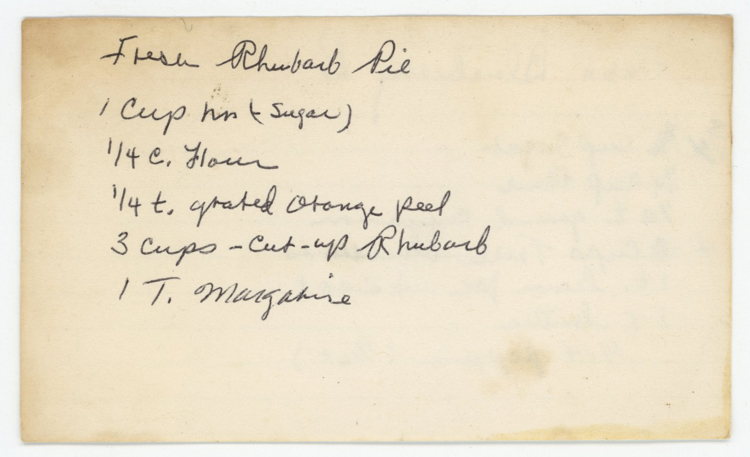 Fresh Rhubarb Pie
1 Cup (Sugar)
1/4 c. Flour
1/4 t. grated Orange peel
3 Cups - Cut-up Rhubarb
1 T. Margarine